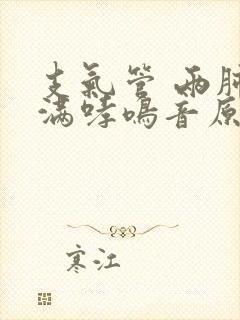 支氣管 兩肺
滿哮鳴音原
寒江